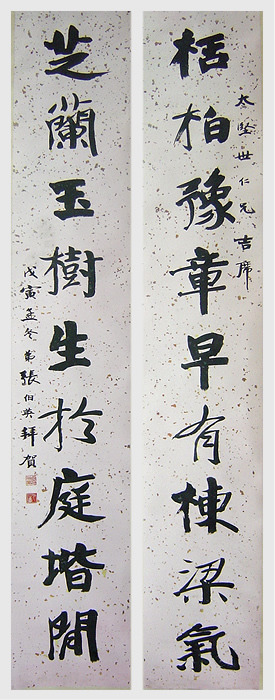 太堅世仁兄吉席
栝柏豫章早有棟梁氣
芝蘭玉樹生扵庭堦閒
戊寅孟冬弟張伯英拜賀